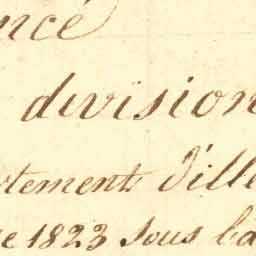 ncé
division
rtements d'ille
e 1823 sous la